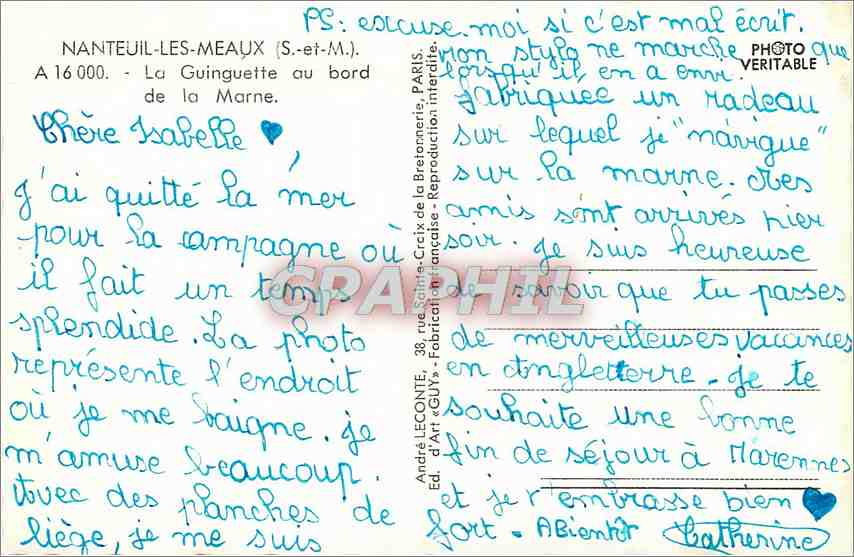 PS: escuse. moi si c'est mal écrit.
mon stylo ne marche que
lorsqu'il en a envi.
NANTEUIL-LES-MEAUX (S.-et-M.).
A 16 000. - La Guinguette au bord
de la Marne.
PHOTO
VERITABLE
Chère Isabelle ♥,
J'ai quitté la mer
pour la campagne où
il fait un temps
splendide. La photo
représente l'endroit
où je me baigne. Je
m'amuse beaucoup.
Avec des planches de
liège, je me suis
André LECONTE, 38, rue Sainte-Croix de la Bretonnerie, PARIS.
Ed. d'Art «GUY» - Fabrication française - Reproduction interdite.
fabriquée un radeau
sur lequel je "navigue"
sur la marne. Mes
amis sont arrivés hier
soir. Je suis heureuse
de savoir que tu passes
de merveilleuses vacances
en Angleterre. Je te
souhaite une bonne
fin de séjour à Marennes
et je t'embrasse bien ♥
fort - A Bientôt Catherine
CPAPHIL